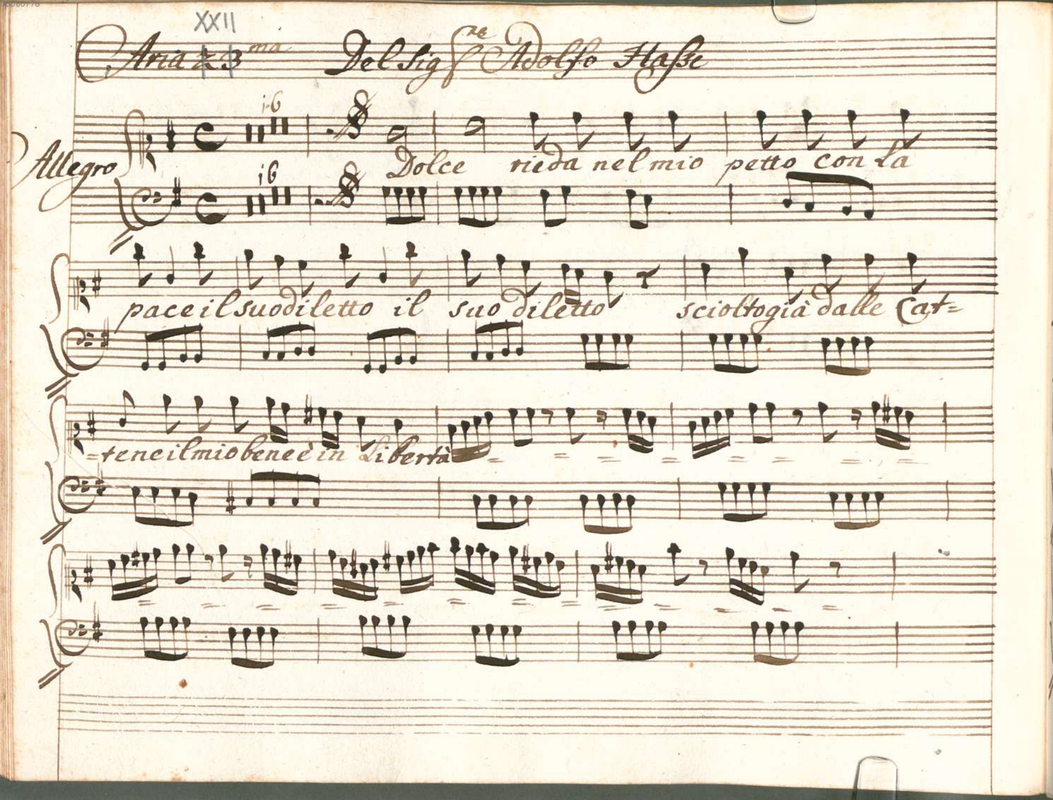 XXII
Aria 3ma Del Sigre Adolfo Hasse
i6
Allegro
Dolce rieda nel mio petto con La
i6
pace il suo diletto il suo diletto scioltogià dalle Cat=
=tene il mio bene è in Libertà